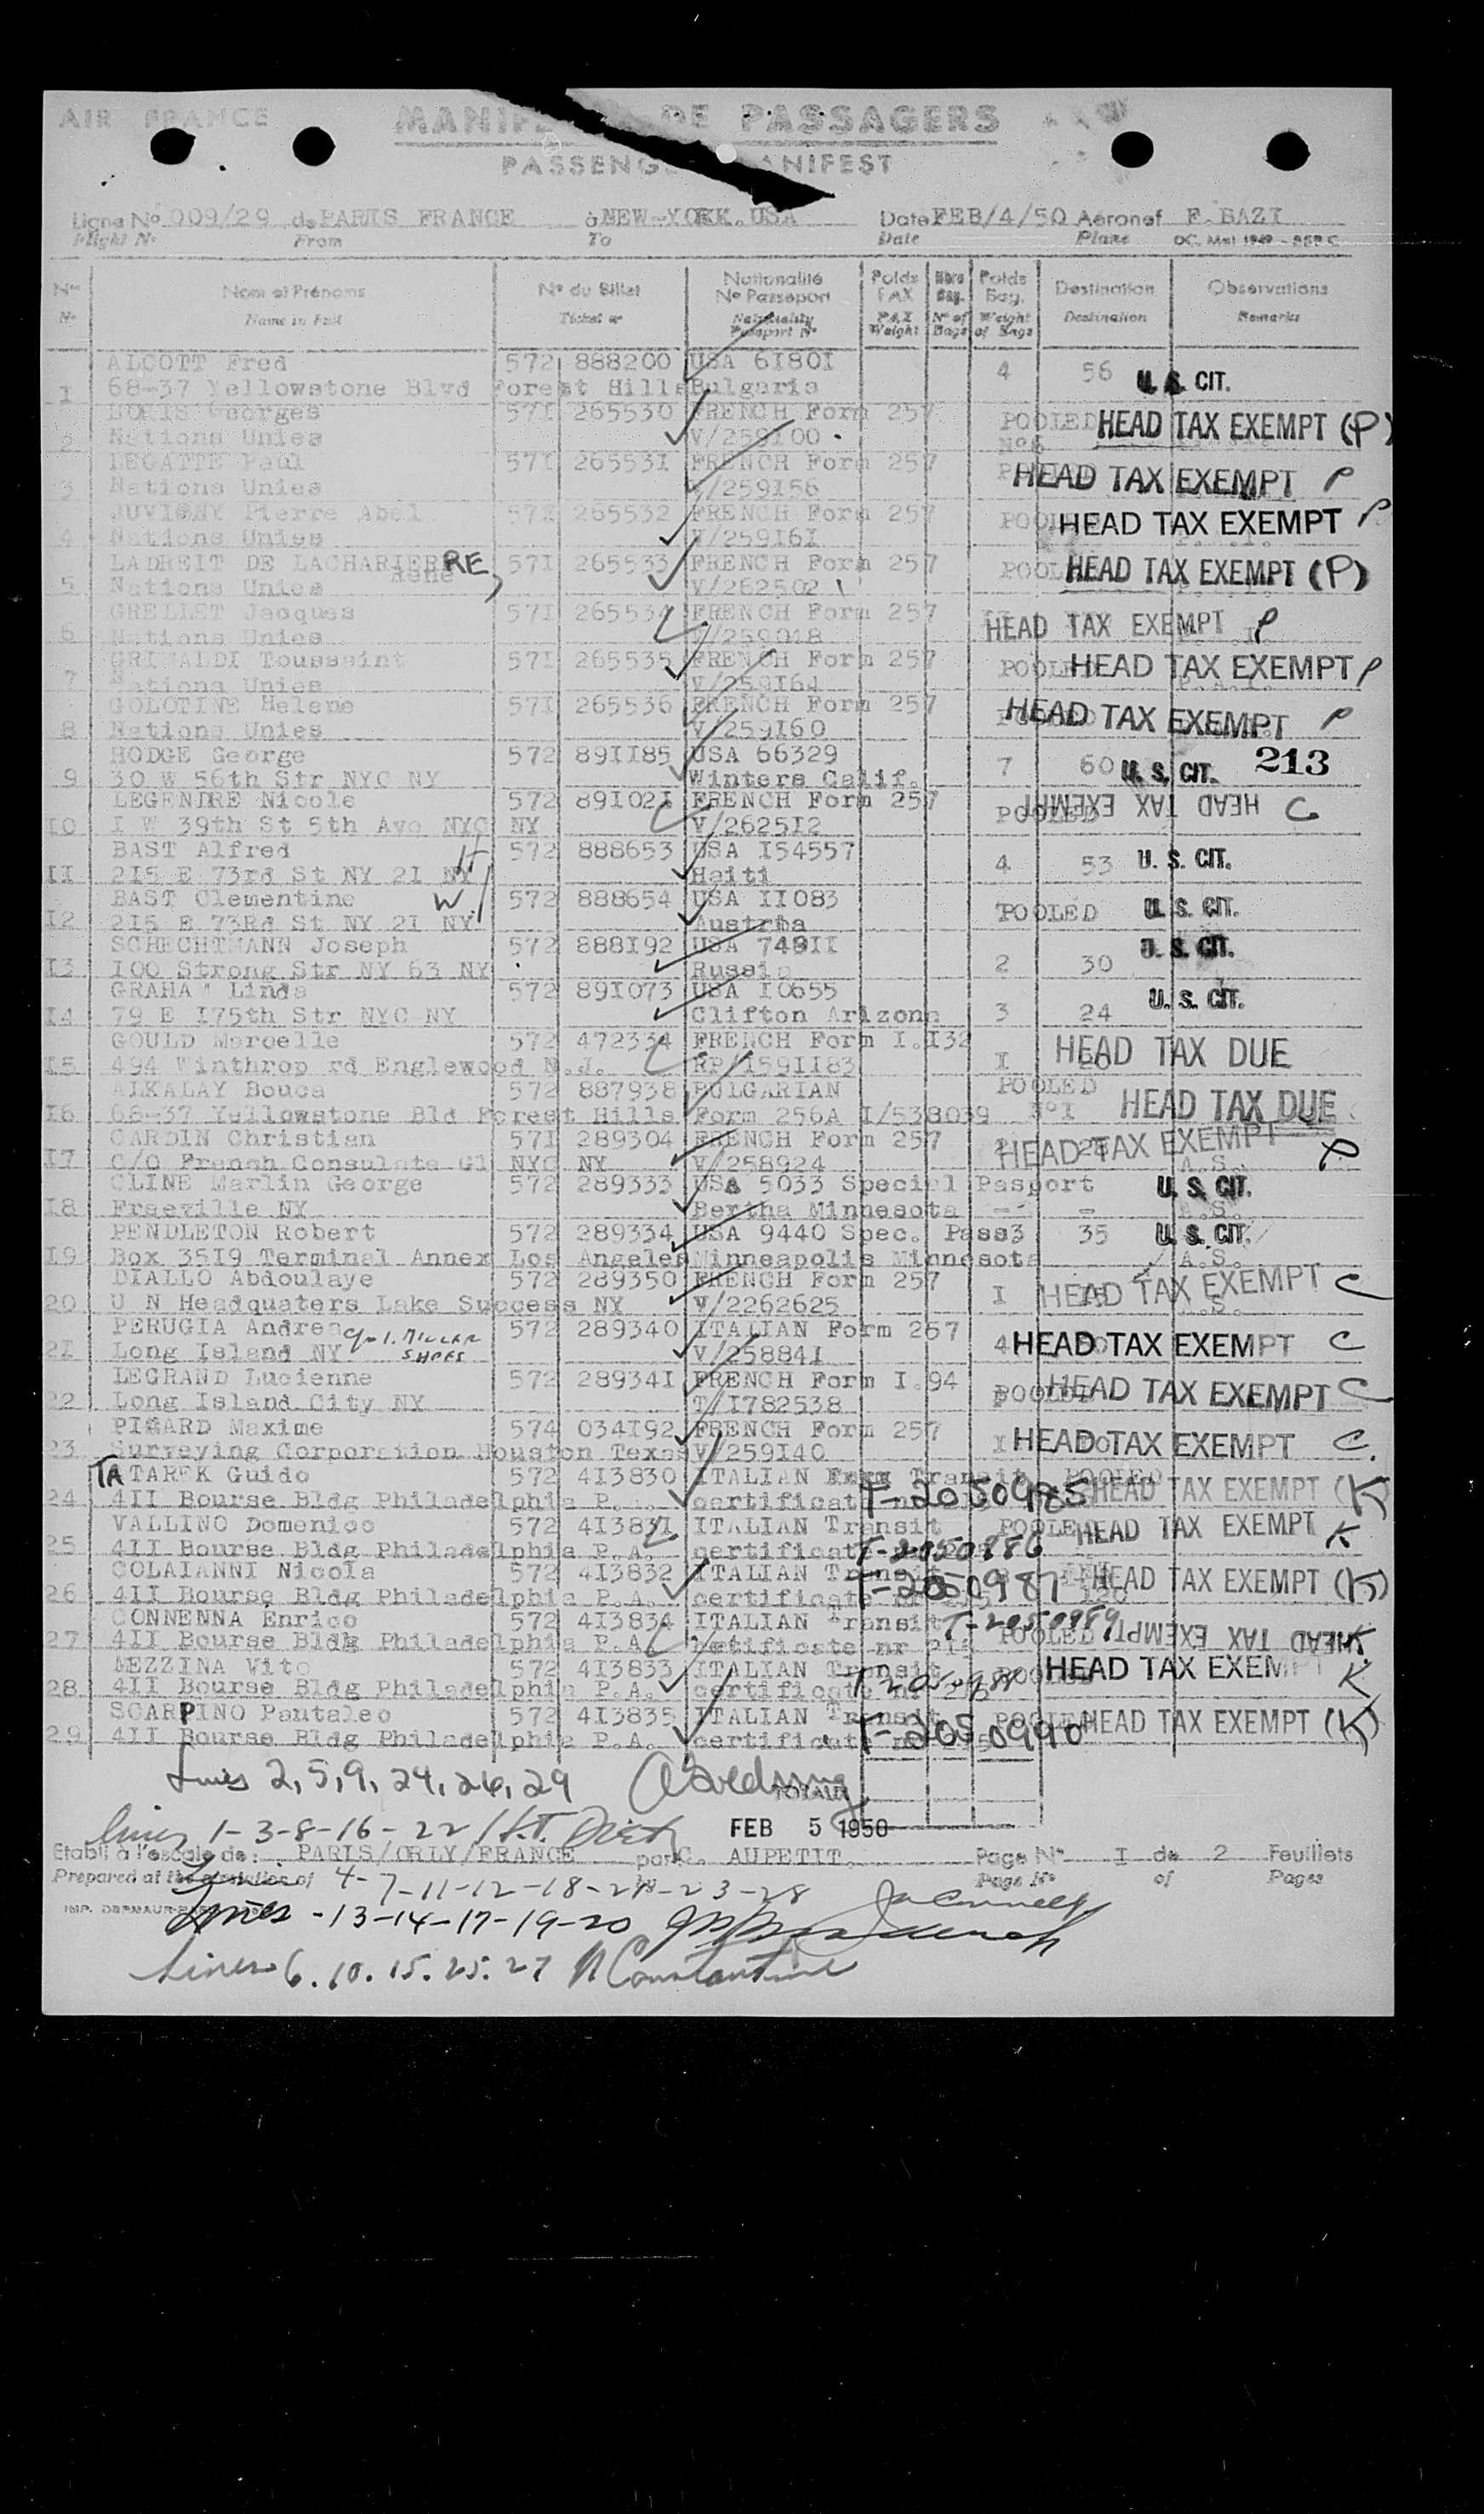 AIR FRANCE MANIF DE PASSAGERS
PASSENG ANIFEST
Ligne No 009/29 de PARIS FRANCE à NEW-YORK. USA Date FEB/4/50 Aéronef F. BAZI
Flight No From To Date Plane OC. Mai 1949
Nos Nom et Prénoms No du Billet Nationalité No Passeport Poids PAX Nbre Bag. Poids Bag. Destination Observations
No Name in Full Ticket nr Nationality Passport No PAX Weight No of Bags Weight of Bags Destination Remarks
ALCOTT Fred 572 888200 USA 6I80I 4 56 U. S. CIT.
I 68-37 Yellowstone Blvd Forest Hills Bulgaria
Georges 57I 265530 FRENCH Form 257 POOLED HEAD TAX EXEMPT (P)
2 Nations Unies V/259I00 No6
LEGATTE Paul 57I 26553I FRENCH Form 257 HEAD TAX EXEMPT P
3 Nations Unies V/259I56
JUVIGNY Pierre Abel 57I 265532 FRENCH Form 257 HEAD TAX EXEMPT P
4 Nations Unies V/259I6I
LADREIT DE LACHARIERRE 57I 265533 FRENCH Form 257 HEAD TAX EXEMPT (P)
René
5 Nations Unies V/262502
GRELLET Jacques 57I 265534 FRENCH Form 257 HEAD TAX EXEMPT P
6 Nations Unies V/2590I8
GRIMALDI Toussaint 57I 265535 FRENCH Form 257 POOLED HEAD TAX EXEMPT P
7 Nations Unies V/259I64
GOLOTINE Helene 57I 265536 FRENCH Form 257 HEAD TAX EXEMPT P
8 Nations Unies V/259I60
HODGE George 572 89II85 USA 66329 7 60 U. S. CIT. 213
9 30 W 56th Str NYC NY Winters Calif.
LEGENDRE Nicole 572 89I02I FRENCH Form 257 POOLED HEAD TAX EXEMPT C
I0 I W 39th St 5th Ave NYC NY V/2625I2
BAST Alfred H 572 888653 USA I54557 4 53 U. S. CIT.
II 2I5 E 73rd St NY 2I NY Haiti
BAST Clementine W. 572 888654 USA II083 POOLED U. S. CIT.
I2 2I5 E 73Rd St NY 2I NY Austria
SCHECHTMANN Joseph 572 888I92 USA 748II 2 30 U. S. CIT.
I3 I00 Strong Str NY 63 NY Russia
GRAHAM Linda 572 89I073 USA I0655 3 24 U. S. CIT.
I4 79 E I75th Str NYC NY Clifton Arizona
GOULD Marcelle 572 472334 FRENCH Form I.I32 I 20 HEAD TAX DUE
I5 494 Winthrop rd Englewood N.J. RP/I59II83
ALKALAY Bouca 572 887938 BULGARIAN POOLED
I6 68-37 Yellowstone Bld Forest Hills Form 256A I/538039 NoI HEAD TAX DUE
CARDIN Christian 57I 289304 FRENCH Form 257 HEAD TAX EXEMPT P
I7 C/O French Consulate Gl NYC NY V/258924 A.S.
CLINE Marlin George 572 289333 USA 5033 Special Pasport U. S. CIT.
I8 Freeville NY Bertha Minnesota - - A.S.
PENDLETON Robert 572 289334 USA 9440 Spec. Pass3 35 U. S. CIT.
I9 Box 35I9 Terminal Annex Los Angeles Minneapolis Minnesota A.S.
DIALLO Abdoulaye 572 289350 FRENCH Form 257 I HEAD TAX EXEMPT C
20 U N Headquaters Lake Success NY V/2262625
PERUGIA Andrea c/o I. MILLER SHOES 572 289340 ITALIAN Form 257 4 HEAD TAX EXEMPT C
2I Long Island NY V/25884I
LEGRAND Lucienne 572 28934I FRENCH Form I.94 POOLED HEAD TAX EXEMPT C
22 Long Island City NY T/I782538
PICARD Maxime 574 034I92 FRENCH Form 257 I HEAD TAX EXEMPT C.
23 Surveying Corporation Houston Texas V/259I40
TATAREK Guido 572 4I3830 ITALIAN Transit POOLED HEAD TAX EXEMPT (K)
24 4II Bourse Bldg Philadelphia P.A. certificate T-2050985
VALLINO Domenico 572 4I383I ITALIAN Transit POOLED HEAD TAX EXEMPT K
25 4II Bourse Bldg Philadelphia P.A. certificate T-2050986
COLAIANNI Nicola 572 4I3832 ITALIAN Transit T-2050987 HEAD TAX EXEMPT (K)
26 4II Bourse Bldg Philadelphia P.A. certificate nr
CONNENNA Enrico 572 4I3834 ITALIAN Transit T-2050989 POOLED HEAD TAX EXEMPT K
27 4II Bourse Bldg Philadelphia P.A. certificate nr
MEZZINA Vito 572 4I3833 ITALIAN Transit HEAD TAX EXEMPT K
28 4II Bourse Bldg Philadelphia P.A. certificate nr
SCARPINO Pantaleo 572 4I3835 ITALIAN Transit POOLED HEAD TAX EXEMPT (K)
29 4II Bourse Bldg Philadelphia P.A. certificate T-2050990
Lines 2, 5, 9, 24, 26, 29
TOTAUX
Lines 1-3-8-16-22 FEB 5 1950
Etabli à l'escale de : PARIS/ORLY/FRANCE par C. AUPETIT. Page No I de 2 Feuillets
Prepared at the station of by Page No of Pages
Lines 4-7-11-12-18-21-23-28
Lines -13-14-17-19-20
Lines 6. 10. 15. 25. 27 N Constantine